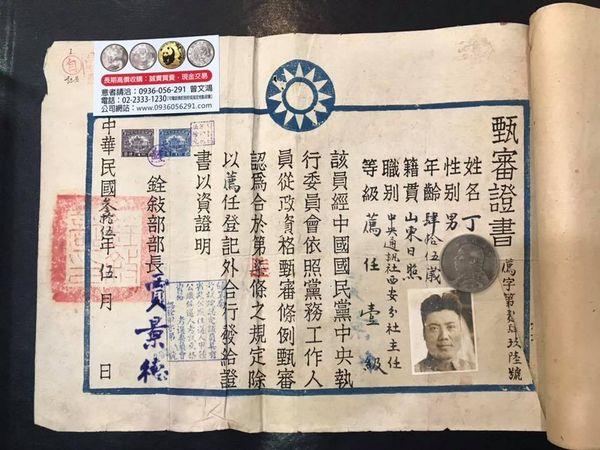 甄審證書
薦字第玖陸號
姓名 丁
性別 男
年齡 肆拾伍歲
籍貫 山東日照
職別 中央通訊社西安分社主任
等級 薦任壹級
該員經中國國民黨中央執
行委員會依照黨務工作人
員從政資格甄審條例甄審
認為合於第柒條之規定除
以薦任登記外合行發給證
書以資證明
銓敍部部長 賈景德
中華民國叁拾伍年伍月 日
長期高價收購：誠實買賣，現金交易
意者請洽：0936-056-291 曾文鴻
電話：02-2333-1230
公司網站：www.0936056291.com